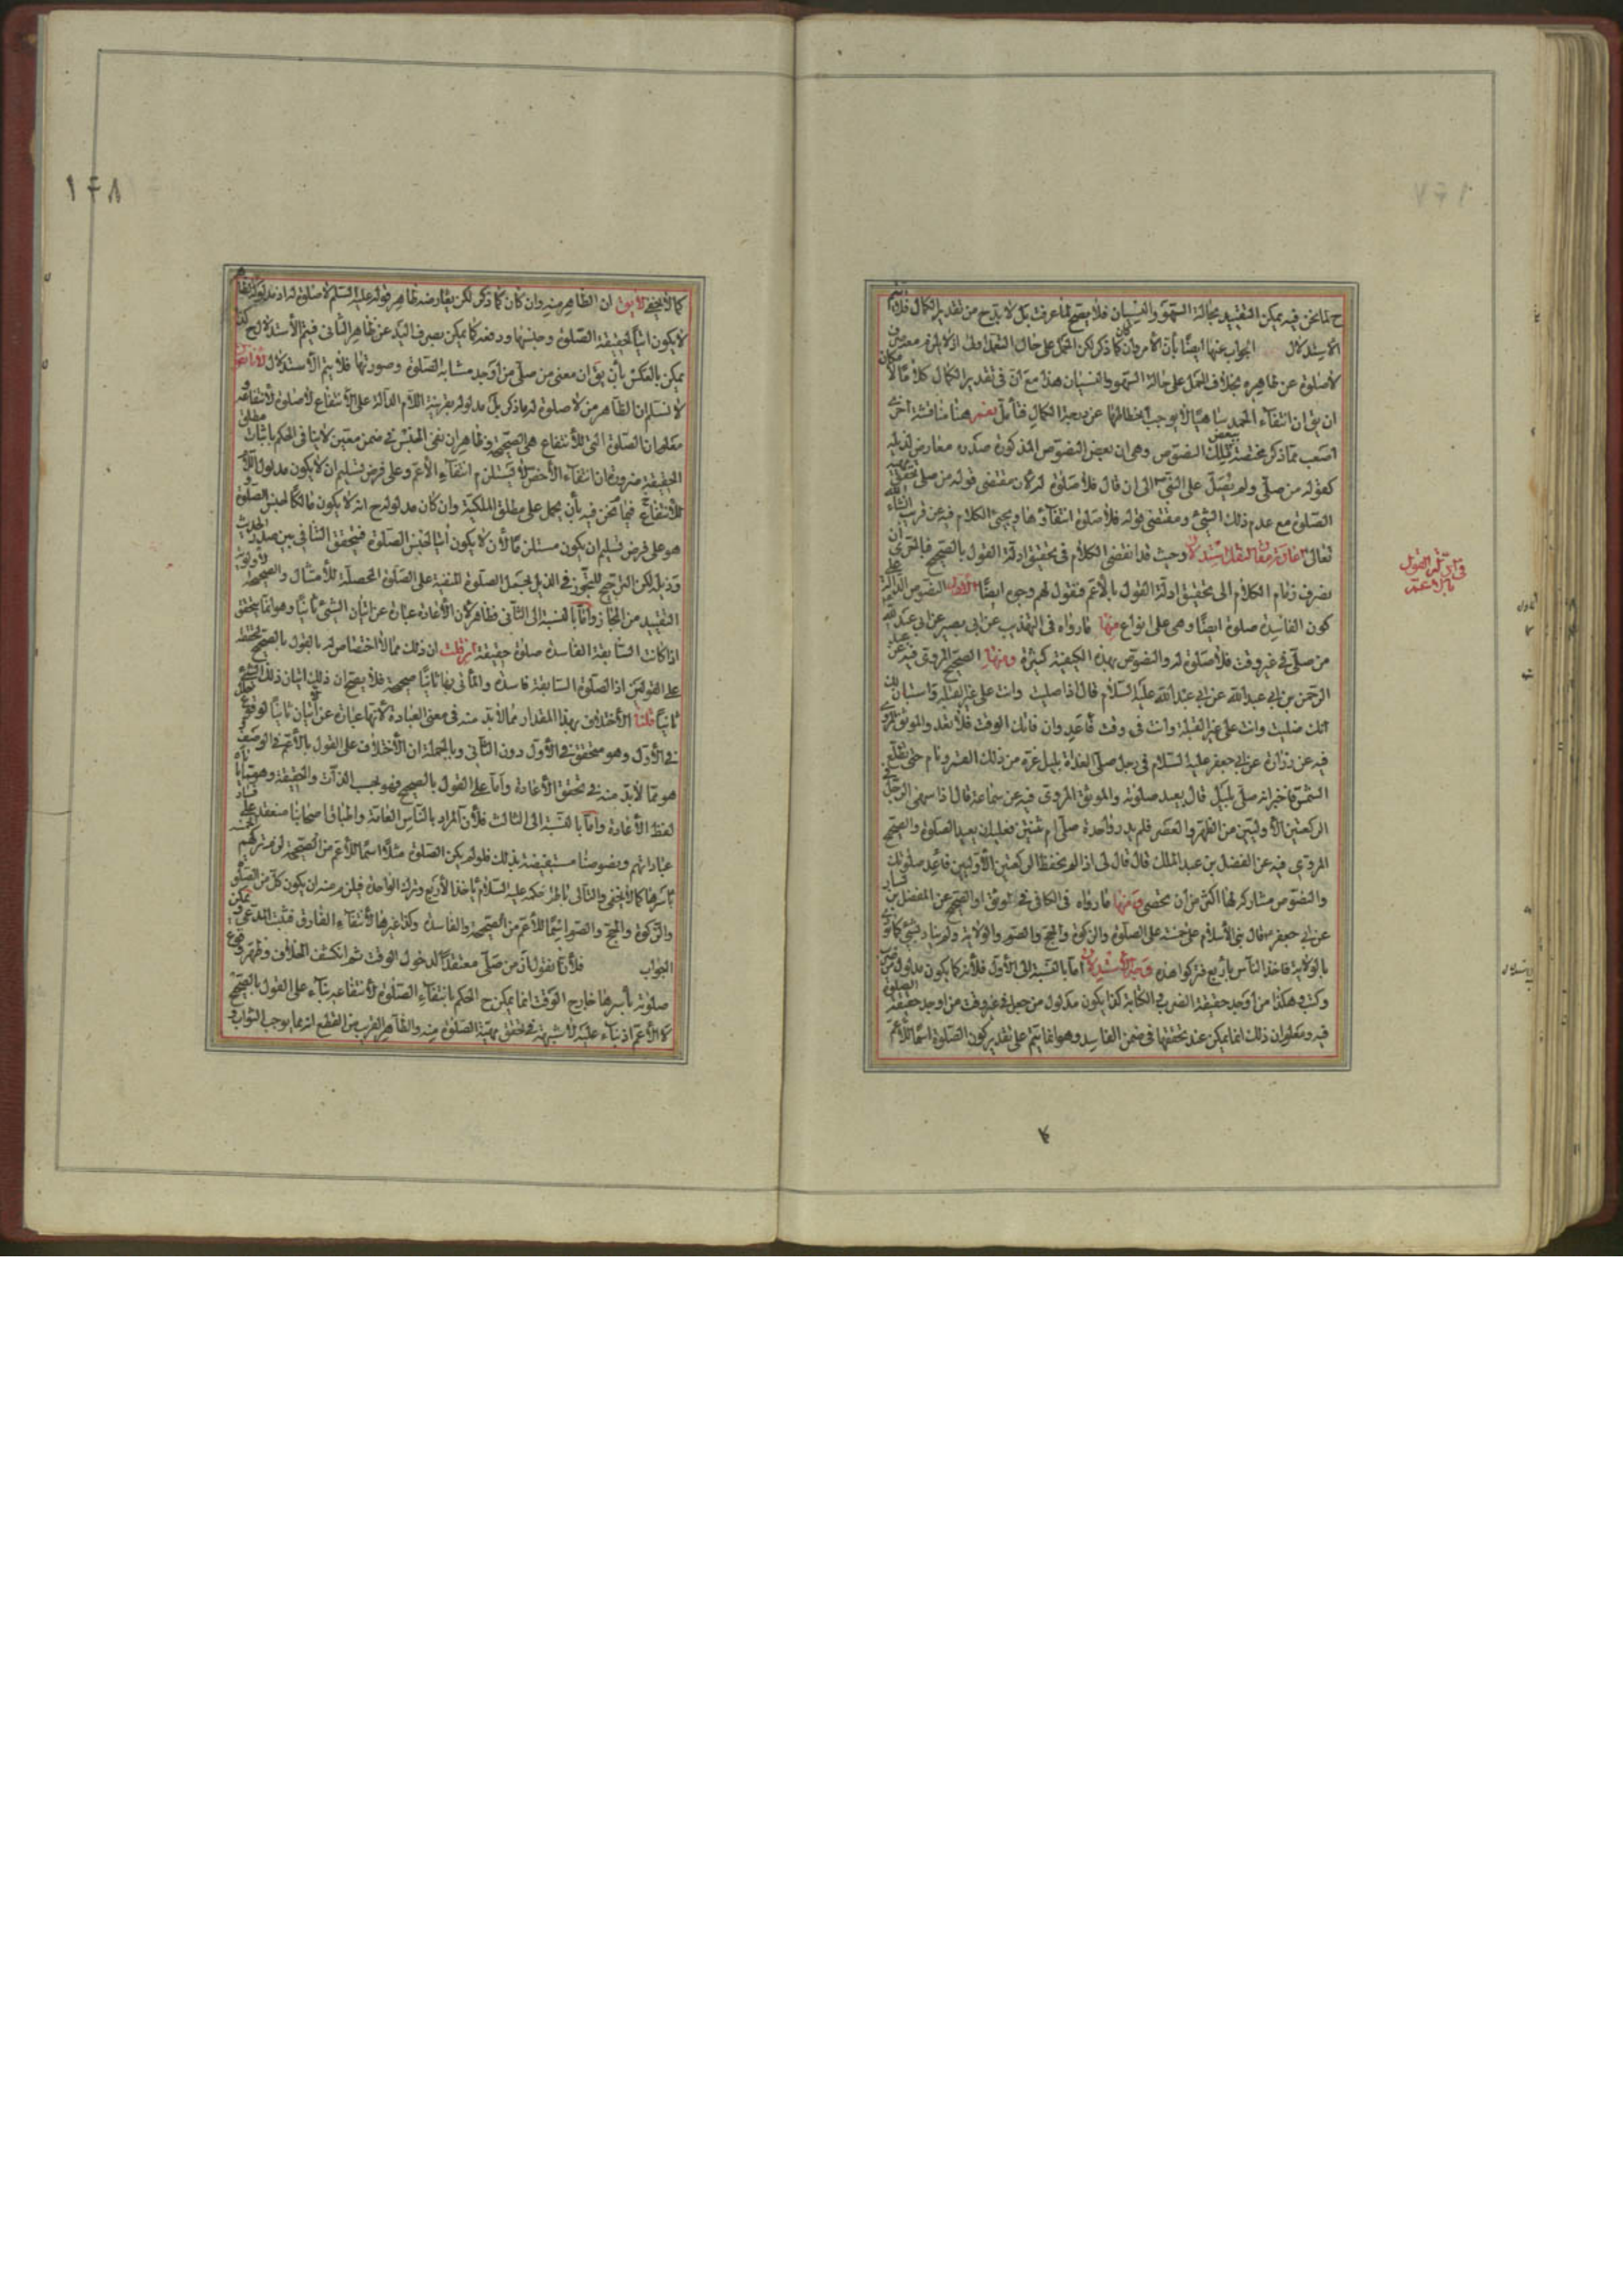 ح لما نحن فيه يمكن التقييد بحالة السهو والنسيان فلا يصح لما عرفت بل لا بد ح من تقدير الكمال فلا يتم
الاستدلال الجواب عنها ايضا بأن الأمر وان كان كما ذكر لكن الحمل على حال
لا صلوة عن ظاهره بخلاف الحمل على حالة السهو والنسيان هذا مع ان في تقدير الكمال كلاما
ان يق ان انتفاء الحمد ساهيا لا يوجب انحطاطها عن درجة الكمال فتأمل نعم هنا مناقشة اخرى
اصعب مما ذكر مختصة ببعض تلك النصوص وهي ان بعض النصوص المذكورة صدره معارض لذيله
كقوله من صلى ولم يصل على النبي الى ان قال فلا صلوة له لان مقتضى قوله من صلى تحقق
الصلوة مع عدم ذلك الشيء ومقتضى قوله فلا صلوة انتفاؤها ويجيء الكلام فيه عن قريب انشاء الله
تعالى وحيث قد انقضى الكلام في تحقيق ادلة القول بالصحيح فالحري ان
نصرف زمام الكلام الى تحقيق ادلة القول بالأعم فنقول لهم وجوه ايضا الاول النصوص الدالة على
كون الفاسدة صلوة ايضا وهي على انواع منها ما رواه في التهذيب عن ابي بصير عن ابي عبد الله
من صلى في غير وقت فلا صلوة له والنصوص بهذه الكيفية كثيرة ومنها الصحيح المروي فيه عن عبد
الرحمن بن ابي عبد الله عن ابي عبد الله عليه السلام قال اذا صليت وانت على غير القبلة واستبان لك
انك صليت وانت على غير القبلة وانت في وقت فأعد وان فاتك الوقت فلا تعد والموثق المروي
فيه عن زرارة عن ابي جعفر عليه السلام في رجل صلى الغداة بليل غره من ذلك القمر ونام حتى تطلع
الشمس فاخبر انه صلى بليل قال يعيد صلوته والموثق المروي فيه عن سماعة قال اذا سهى الرجل في
الركعتين الأوليين من الظهر والعصر فلم يدر واحدة صلى ام ثنتين فعليه ان يعيد الصلوة والصحيح
المروي فيه عن الفضل بن عبد الملك قال قال لي اذا لم تحفظ الركعتين الأوليين فأعد صلوتك
والنصوص مشاركة لها اكثر من أن تحصى ومنها ما رواه في الكافي في الموثق او الصحيح عن الفضيل بن يسار
عن ابي جعفر قال بني الأسلام على خمسة على الصلوة والزكوة والحج والصوم والولاية ولم يناد بشيء كما نودي
بالولاية فاخذ الناس بأربع وتركوا هذه وجه الأستدلال أما بالنسبة الى الأول فلأنه كما يكون مدلول من ضرب
وكتب هكذا من أوجد حقيقة الضرب والكتابة كذا يكون مدلول من صلى في غير وقت من اوجد حقيقة الصلوة
فيه ومعلوم ان ذلك انما يمكن عند تحققها في ضمن الفاسد وهو انما يتم على تقدير كون الصلوة اسما للأعم
في ادلة القول بالاعم
١٤٨
كما لا يخفى لا يق ان الظاهر منه وان كان كما ذكر لكن يعارضه ظاهر قوله عليه السلم لا صلوة له اذ مدلوله
لا يكون اتيا لحقيقة الصلوة وجنسها ودفعه كما يمكن بصرف اليد عن ظاهر الثاني فيتم الأستدلال ح كذا
يمكن بالعكس بأن يق ان معنى من صلى من أوجد مشابه الصلوة وصورتها فلا يتم الأستدلال لأنا نقول
لا نسلم ان الظاهر من لا صلوة له ما ذكر بل مدلوله بقرينة اللام الدالة على الأنتفاع لا صلوة لانتفاعه و
معلوم ان الصلوة التي للأنتفاع هي الصحيحة وظاهر ان نفي الجنس في ضمن معين لا ينافي الحكم باثبات مطلق
الحقيقة ضرورة ان انتفاء الأخص لا يستلزم انتفاء الأعم وعلى فرض تسليم ان لا يكون مدلول اللام
للأنتفاع فيما نحن فيه بأن يحمل على مطلق الملكية وان كان مدلوله ح انه لا يكون مالكا لجنس الصلوة و
هو على فرض تسليم ان يكون مستلزما لأن لا يكون اتيا لجنس الصلوة فيتحقق التنافي بين صدر الحديث
وذيله لكن الترجيح للتجوز في الذيل بحمل الصلوة المنفية على الصلوة المحصلة للأمتثال والصحيحة
التقييد من المجاز وأما بالنسبة الى الثاني فظاهر لأن الأعادة عبارة عن اتيان الشيء ثانيا وهو انما يتحقق
اذا كانت السابقة الفاسدة صلوة حقيقة ان قلت ان ذلك مما لا اختصاص له بالقول بالصحيح لتحققه
على القولين اذ الصلوة السابقة فاسدة والمأتي بها ثانيا صحيحة فلا يصح ان ذلك اتيان ذلك الشيء
ثانيا قلنا الأختلاف بهذا المقدار مما لا بد منه في معنى العبادة لأنها عبارة عن اتيان ثانيا لوقوع
في الأول وهو متحقق في الأول دون الثاني وبالجملة ان الأختلاف على القول بالأعم في الوصف
هو مما لا بد منه في تحقق الأعادة وأما على القول بالصحيح فهو بحسب الذات والحقيقة وهو مما يأباه
لفظ الأعادة وأما بالنسبة الى الثالث فلأن المراد بالناس العامة واطباق اصحابنا منعقد على فساد
عباداتهم ونصوصنا مستفيضة بذلك فلو لم يكن الصلوة مثلا اسما للأعم من الصحيحة لزم تركهم الخمسة
بأسرها كما لا يخفى والتالي باطل لحكمه عليه السلام بأخذ الأربع وترك الواحدة فيلزم منه ان يكون كل من الصلوة
والزكوة والحج والصوم اسما للأعم من الصحيحة والفاسدة وكذا غيرها لأنتفاء الفارق فثبت المدعى ويمكن
الجواب فلأنا نقول ان من صلى معتقدا لدخول الوقت ثم انكشف الخلاف وظهر وقوع
صلوته بأسرها خارج الوقت انما يمكن ح الحكم بانتفاء الصلوة لأنتفاعه بناء على القول بالصحيح
لا الأعم اذ بناء عليه لا شبهة في تحقق مهية الصلوة منه والظاهر القريب من القطع انه مما يوجب الثواب و